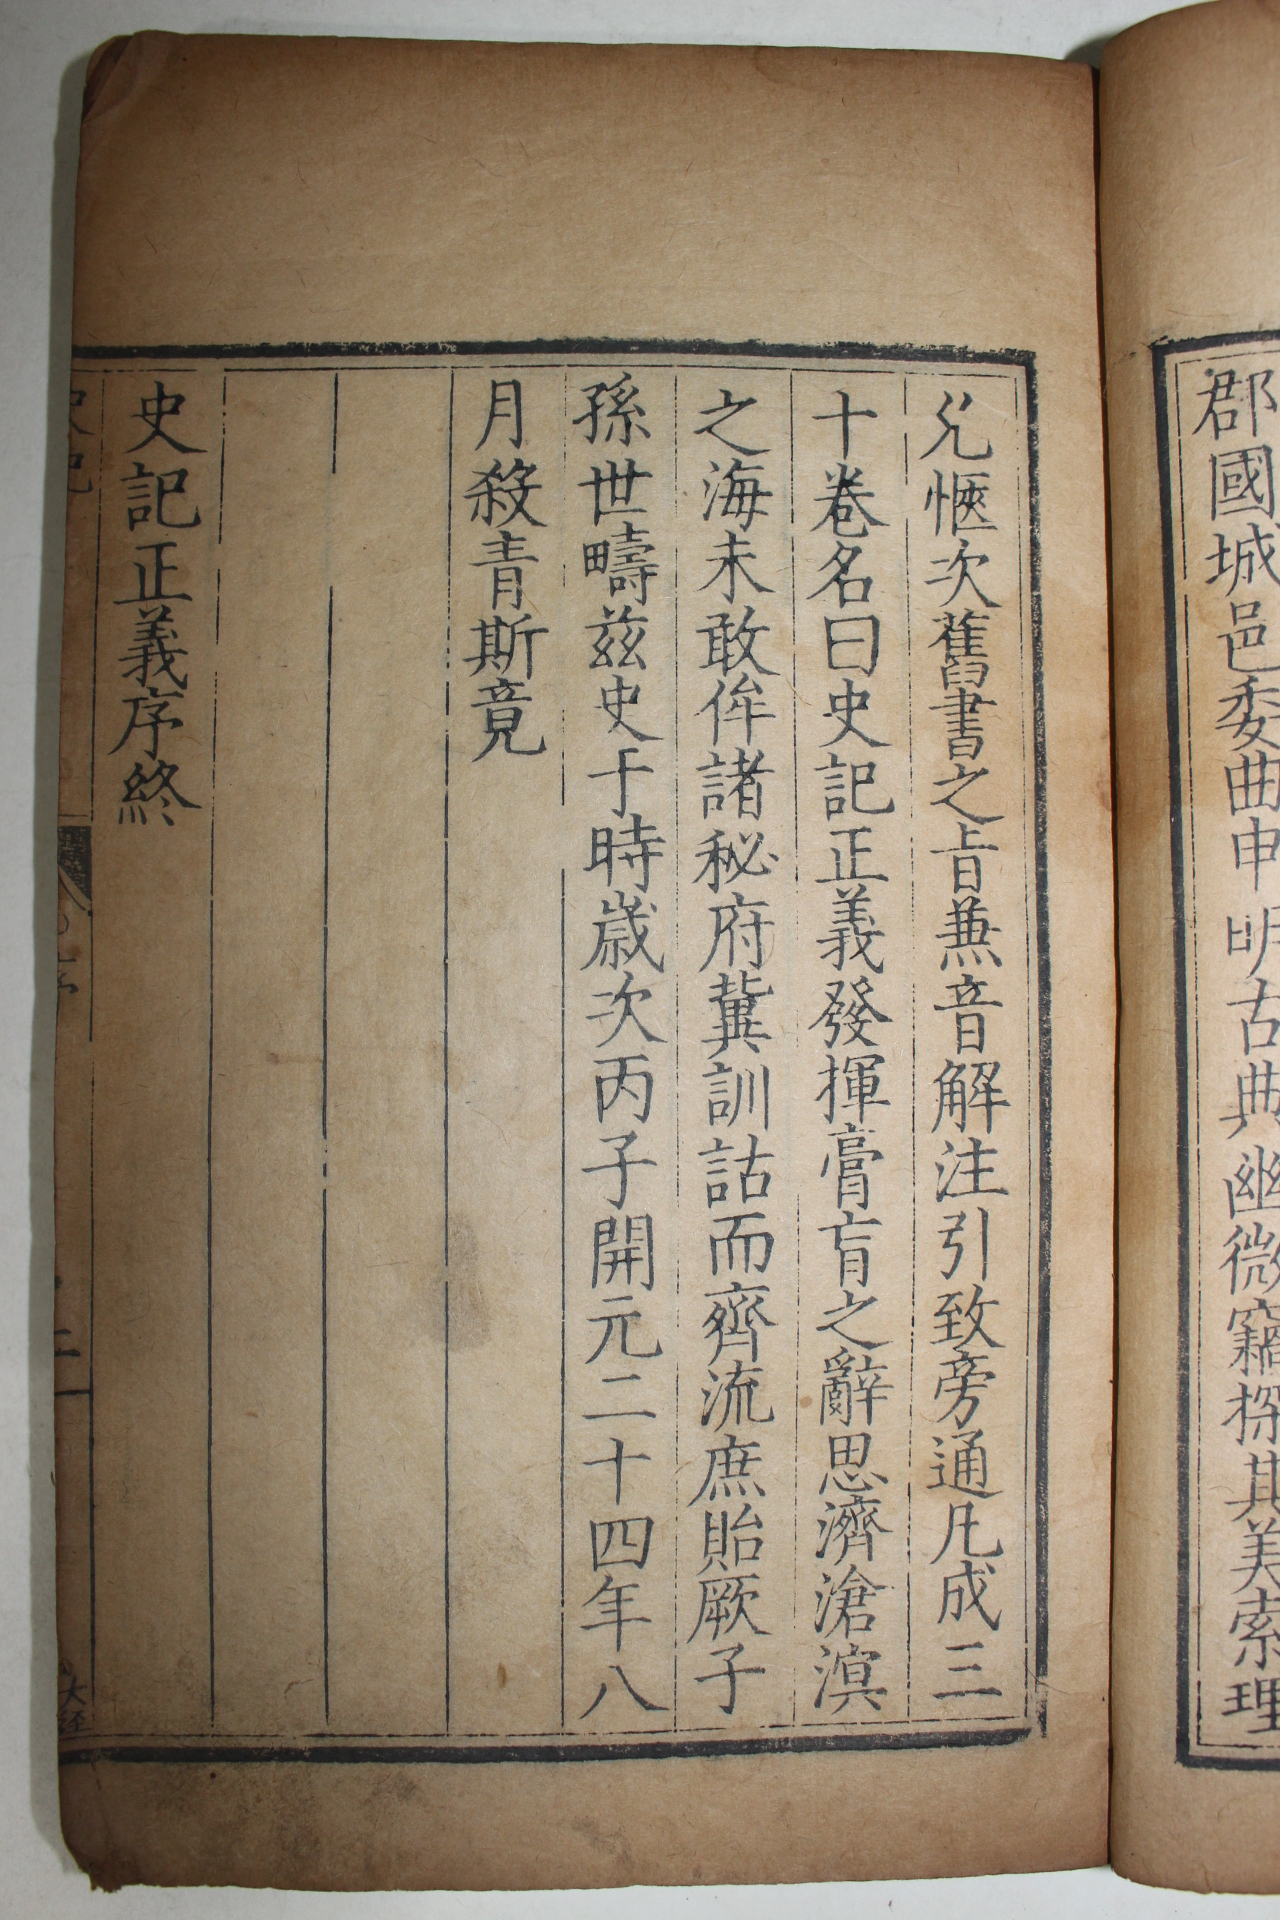 郡國城邑委曲申明古典幽微竊探其美索理
允愜次舊書之旨兼音解注引致旁通凡成三
十卷名曰史記正義發揮膏肓之辭思濟滄溟
之海未敢侔諸秘府冀訓詁而齊流庶貽厥子
孫世疇茲史于時歲次丙子開元二十四年八
月殺青斯竟
史記正義序終